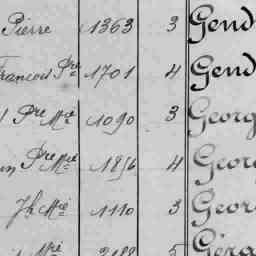 Pierre 1363 3 Gend
Francois Pre 1701 4 Gend
Pre Mie 1090 3 Georg
Pre Mie 1856 4 Geor
Jh Mie 1110 3 Geor
Mie 5 Géra